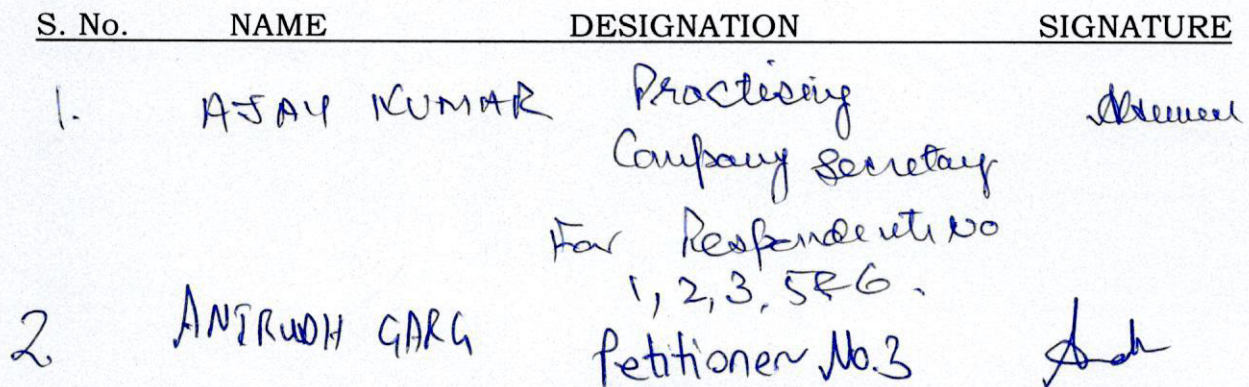 S. No. NAME DESIGNATION SIGNATURE
1. AJAY KUMAR Practising
Company Secretary
For Respondent No
1, 2, 3, 5 & 6.
2 ANIRUDH GARG Petitioner No.3